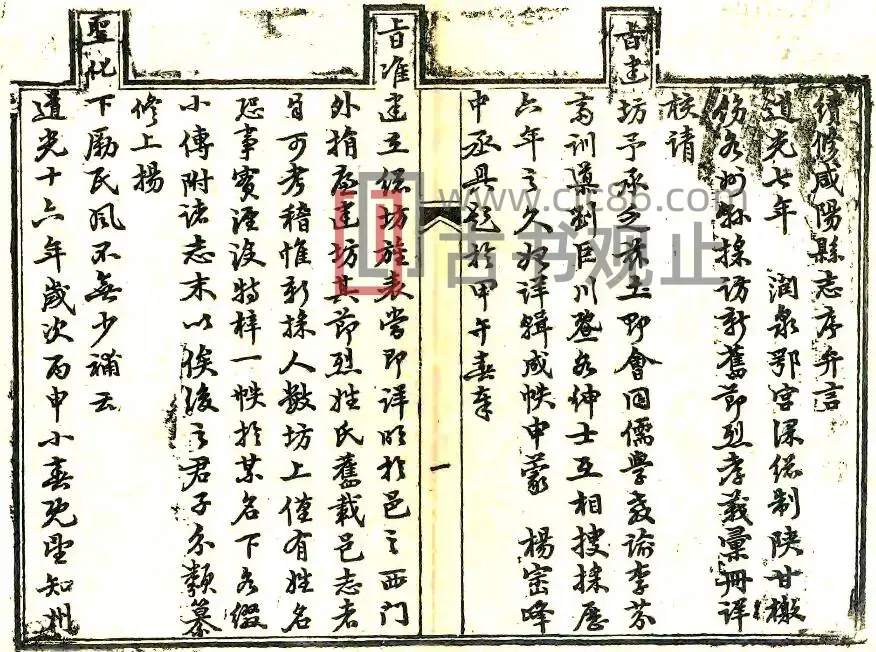 續修咸陽縣志序弁言
道光七年 潤泉鄂宮保總制陝甘檄
飭各州縣採訪新舊節烈孝義彙冊詳
核請
旨建坊予承乏茲土即會同儒學教諭李芬
高訓導劉巨川暨各紳士互相搜採歷
六年之久始詳輯成帙申蒙 楊密峰
中丞具題於甲午春奉
一
旨准建立總坊旌表當即詳明於邑之西門
外捐廉建坊其節烈姓氏舊載邑志者
自可考稽惟新採人數坊上僅有姓名
恐事實湮沒特梓一帙於某名下各綴
小傳附諸志末以俟後之君子分類纂
修上揚
聖化下勵民風不無少補云
道光十六年歲次丙申小春既望知州
www.cjc86.com
古书观止